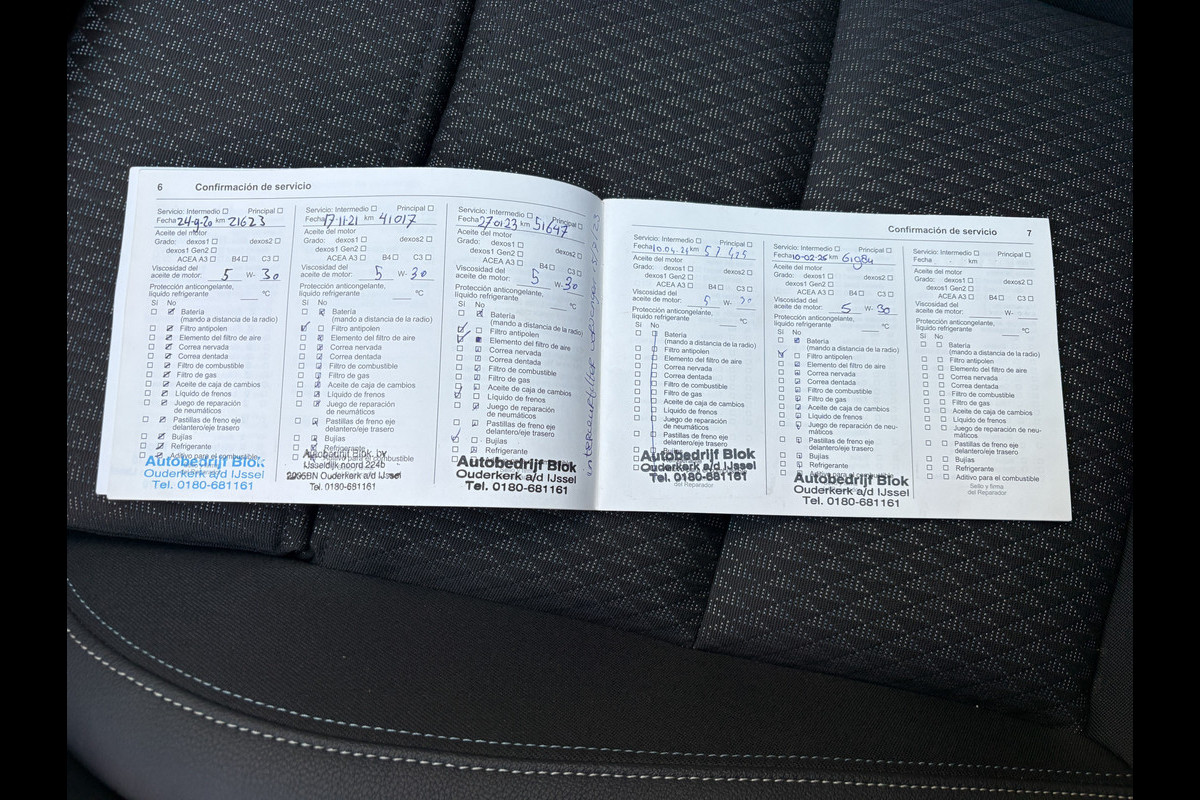 6 Confirmación de servicio
Servicio: Intermedio □ Principal □
Fecha 24-9-20 km 21623
Aceite del motor
Grado: dexos1 □ dexos2 □
dexos1 Gen2 □
ACEA A3 □ B4 □ C3 □
Viscosidad del
aceite de motor: 5 W- 30
Protección anticongelante,
líquido refrigerante °C
Sí No
Batería
(mando a distancia de la radio)
Filtro antipolen
Elemento del filtro de aire
Correa nervada
Correa dentada
Filtro de combustible
Filtro de gas
Aceite de caja de cambios
Líquido de frenos
Juego de reparación
de neumáticos
Pastillas de freno eje
delantero/eje trasero
Bujías
Refrigerante
Aditivo para el combustible
Autobedrijf Blok
Ouderkerk a/d IJssel
Tel. 0180-681161
Servicio: Intermedio □ Principal □
Fecha 17-11-21 km 41017
Aceite del motor
Grado: dexos1 □ dexos2 □
dexos1 Gen2 □
ACEA A3 □ B4 □ C3 □
Viscosidad del
aceite de motor: 5 W- 30
Protección anticongelante,
líquido refrigerante °C
Sí No
Batería
(mando a distancia de la radio)
Filtro antipolen
Elemento del filtro de aire
Correa nervada
Correa dentada
Filtro de combustible
Filtro de gas
Aceite de caja de cambios
Líquido de frenos
Juego de reparación
de neumáticos
Pastillas de freno eje
delantero/eje trasero
Bujías
Refrigerante
Aditivo para el combustible
Autobedrijf Blok bv
IJsseldijk noord 224b
2935BN Ouderkerk a/d IJssel
Tel. 0180-681161
Servicio: Intermedio □ Principal □
Fecha 270123 km 51647
Aceite del motor
Grado: dexos1 □ dexos2 □
dexos1 Gen2 □
ACEA A3 □ B4 □ C3 □
Viscosidad del
aceite de motor: 5 W- 30
Protección anticongelante,
líquido refrigerante °C
Sí No
Batería
(mando a distancia de la radio)
Filtro antipolen
Elemento del filtro de aire
Correa nervada
Correa dentada
Filtro de combustible
Filtro de gas
Aceite de caja de cambios
Líquido de frenos
Juego de reparación
de neumáticos
Pastillas de freno eje
delantero/eje trasero
Bujías
Refrigerante
Autobedrijf Blok
Ouderkerk a/d IJssel
Tel. 0180-681161
Confirmación de servicio 7
Servicio: Intermedio □ Principal □
Fecha km 57425
Aceite del motor
Grado: dexos1 □ dexos2 □
dexos1 Gen2 □
ACEA A3 □ B4 □ C3 □
Viscosidad del
aceite de motor: 5 W- 30
Protección anticongelante,
líquido refrigerante °C
Sí No
Batería
(mando a distancia de la radio)
Filtro antipolen
Elemento del filtro de aire
Correa nervada
Correa dentada
Filtro de combustible
Filtro de gas
Aceite de caja de cambios
Líquido de frenos
Juego de reparación de
neumáticos
Pastillas de freno eje
delantero/eje trasero
Autobedrijf Blok
Ouderkerk a/d IJssel
Tel. 0180-681161
del Reparador
Servicio: Intermedio □ Principal □
Fecha 10-02-25 km 61984
Aceite del motor
Grado: dexos1 □ dexos2 □
dexos1 Gen2 □
ACEA A3 □ B4 □ C3 □
Viscosidad del
aceite de motor: 5 W- 30
Protección anticongelante,
líquido refrigerante °C
Sí No
Batería
(mando a distancia de la radio)
Filtro antipolen
Elemento del filtro de aire
Correa nervada
Correa dentada
Filtro de combustible
Filtro de gas
Aceite de caja de cambios
Líquido de frenos
Juego de reparación de neu-
máticos
Pastillas de freno eje
delantero/eje trasero
Bujías
Refrigerante
Aditivo para el combustible
Autobedrijf Blok
Ouderkerk a/d IJssel
Tel. 0180-681161
Servicio: Intermedio □ Principal □
Fecha km
Aceite del motor
Grado: dexos1 □ dexos2 □
dexos1 Gen2 □
ACEA A3 □ B4 □ C3 □
Viscosidad del
aceite de motor: W-
Protección anticongelante,
líquido refrigerante °C
Sí No
Batería
(mando a distancia de la radio)
Filtro antipolen
Elemento del filtro de aire
Correa nervada
Correa dentada
Filtro de combustible
Filtro de gas
Aceite de caja de cambios
Líquido de frenos
Juego de reparación de neu-
máticos
Pastillas de freno eje
delantero/eje trasero
Bujías
Refrigerante
Aditivo para el combustible
Sello y firma
del Reparador